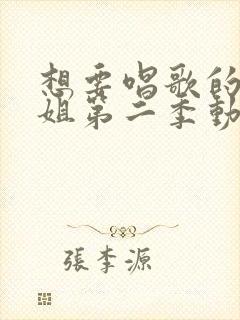 想要唱歌的
姐第二季動
張李源